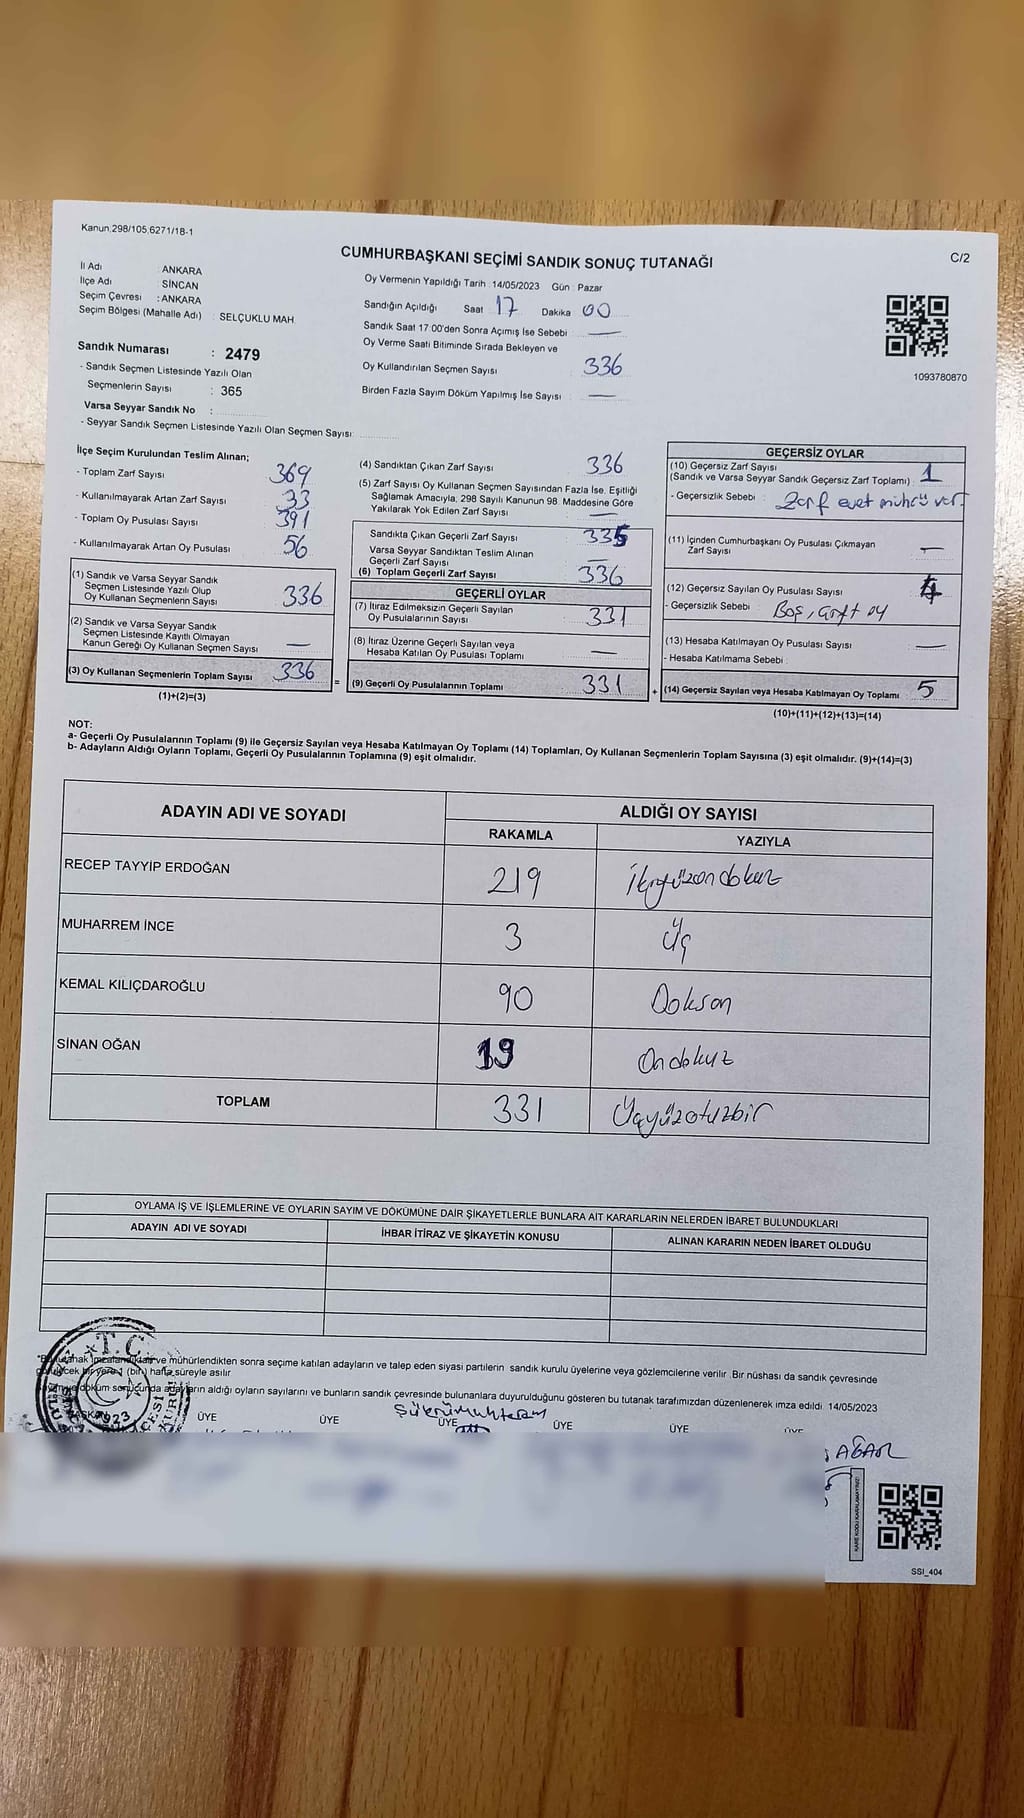 Kanun.298/105,6271/18-1
C/2
CUMHURBAŞKANI SEÇİMİ SANDIK SONUÇ TUTANAĞI
İl Adı : ANKARA
İlçe Adı : SİNCAN
Seçim Çevresi : ANKARA
Seçim Bölgesi (Mahalle Adı) : SELÇUKLU MAH.
Sandık Numarası : 2479
- Sandık Seçmen Listesinde Yazılı Olan
Seçmenlerin Sayısı : 365
Varsa Seyyar Sandık No :
- Seyyar Sandık Seçmen Listesinde Yazılı Olan Seçmen Sayısı:
Oy Vermenin Yapıldığı Tarih : 14/05/2023 Gün : Pazar
Sandığın Açıldığı Saat 17 Dakika 00
Sandık Saat 17:00'den Sonra Açımış İse Sebebi —
Oy Verme Saati Bitiminde Sırada Bekleyen ve
Oy Kullandırılan Seçmen Sayısı 336
Birden Fazla Sayım Döküm Yapılmış İse Sayısı —
1093780870
İlçe Seçim Kurulundan Teslim Alınan;
- Toplam Zarf Sayısı 369
- Kullanılmayarak Artan Zarf Sayısı 33
- Toplam Oy Pusulası Sayısı 391
- Kullanılmayarak Artan Oy Pusulası 56
(1) Sandık ve Varsa Seyyar Sandık
Seçmen Listesinde Yazılı Olup
Oy Kullanan Seçmenlerin Sayısı 336
(2) Sandık ve Varsa Seyyar Sandık
Seçmen Listesinde Kayıtlı Olmayan
Kanun Gereği Oy Kullanan Seçmen Sayısı —
(3) Oy Kullanan Seçmenlerin Toplam Sayısı 336
(1)+(2)=(3)
(4) Sandıktan Çıkan Zarf Sayısı 336
(5) Zarf Sayısı Oy Kullanan Seçmen Sayısından Fazla İse, Eşitliği
Sağlamak Amacıyla, 298 Sayılı Kanunun 98. Maddesine Göre
Yakılarak Yok Edilen Zarf Sayısı —
Sandıkta Çıkan Geçerli Zarf Sayısı 335
Varsa Seyyar Sandıktan Teslim Alınan
Geçerli Zarf Sayısı
(6) Toplam Geçerli Zarf Sayısı 336
GEÇERLİ OYLAR
(7) İtiraz Edilmeksizin Geçerli Sayılan
Oy Pusulalarının Sayısı 331
(8) İtiraz Üzerine Geçerli Sayılan veya
Hesaba Katılan Oy Pusulası Toplamı —
= (9) Geçerli Oy Pusulalarının Toplamı 331
GEÇERSİZ OYLAR
(10) Geçersiz Zarf Sayısı
(Sandık ve Varsa Seyyar Sandık Geçersiz Zarf Toplamı) : 1
- Geçersizlik Sebebi : Zarf evet mühcü var
(11) İçinden Cumhurbaşkanı Oy Pusulası Çıkmayan
Zarf Sayısı —
(12) Geçersiz Sayılan Oy Pusulası Sayısı 4
- Geçersizlik Sebebi : Boş, Çift oy
(13) Hesaba Katılmayan Oy Pusulası Sayısı —
- Hesaba Katılmama Sebebi :
+ (14) Geçersiz Sayılan veya Hesaba Katılmayan Oy Toplamı 5
(10)+(11)+(12)+(13)=(14)
NOT:
a- Geçerli Oy Pusulalarının Toplamı (9) ile Geçersiz Sayılan veya Hesaba Katılmayan Oy Toplamı (14) Toplamları, Oy Kullanan Seçmenlerin Toplam Sayısına (3) eşit olmalıdır. (9)+(14)=(3)
b- Adayların Aldığı Oyların Toplamı, Geçerli Oy Pusulalarının Toplamına (9) eşit olmalıdır.
ADAYIN ADI VE SOYADI ALDIĞI OY SAYISI
RAKAMLA YAZIYLA
RECEP TAYYİP ERDOĞAN 219 ikiyüzondokuz
MUHARREM İNCE 3 Üç
KEMAL KILIÇDAROĞLU 90 Doksan
SİNAN OĞAN 19 Ondokuz
TOPLAM 331 Üçyüzotuzbir
OYLAMA İŞ VE İŞLEMLERİNE VE OYLARIN SAYIM VE DÖKÜMÜNE DAİR ŞİKAYETLERLE BUNLARA AİT KARARLARIN NELERDEN İBARET BULUNDUKLARI
ADAYIN ADI VE SOYADI İHBAR İTİRAZ VE ŞİKAYETİN KONUSU ALINAN KARARIN NEDEN İBARET OLDUĞU
T.C.
tutanak imzalandıktan ve mühürlendikten sonra seçime katılan adayların ve talep eden siyasi partilerin sandık kurulu üyelerine veya gözlemcilerine verilir. Bir nüshası da sandık çevresinde
bir yere 1 (bir) hafta süreyle asılır.
döküm sonucunda adayların aldığı oyların sayılarını ve bunların sandık çevresinde bulunanlara duyurulduğunu gösteren bu tutanak tarafımızdan düzenlenerek imza edildi. 14/05/2023
1923
ÜYE ÜYE ÜYE ÜYE ÜYE ÜYE
AĞAR
KARE KODU KARALAMAYINIZ!
SSI_404